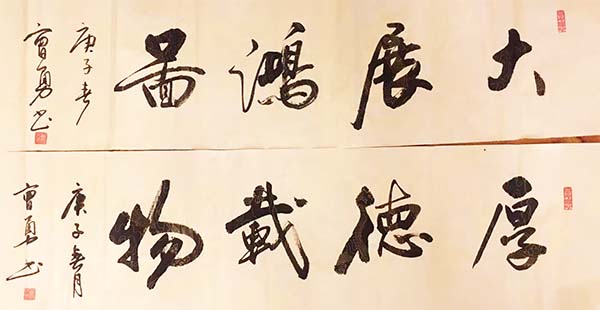 大展鴻圖
庚子春
曹勇书
厚德載物
庚子春月
曹勇书